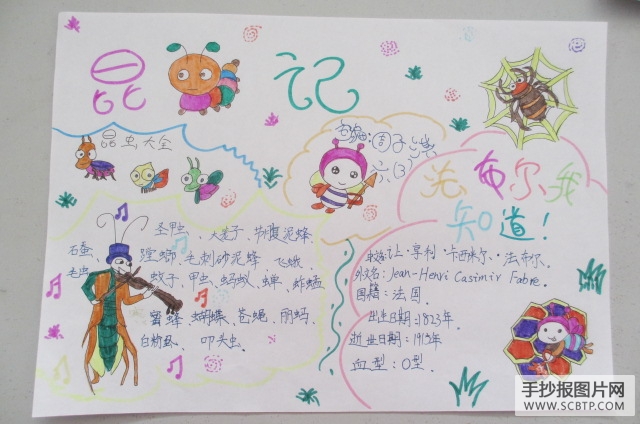 昆 记
昆虫大全
六(3)
法布尔,我
知道!
圣甲虫、大麦子、物腹泥蜂、
石蚕、螳螂、毛刺砂泥蜂、飞蛾、
蚊子、甲虫、蚂蚁、蝉、蚱蜢
蜜蜂、蝴蝶、苍蝇、
叩头虫.
姓名:让·亨利·卡西米尔·法布尔.
外文名:Jean-Henri Casimir Fabre.
国籍:法国.
出生日期:1823年.
逝业日期:1915年.
血型:O型.
手抄报图片网
WWW.SCBTP.COM